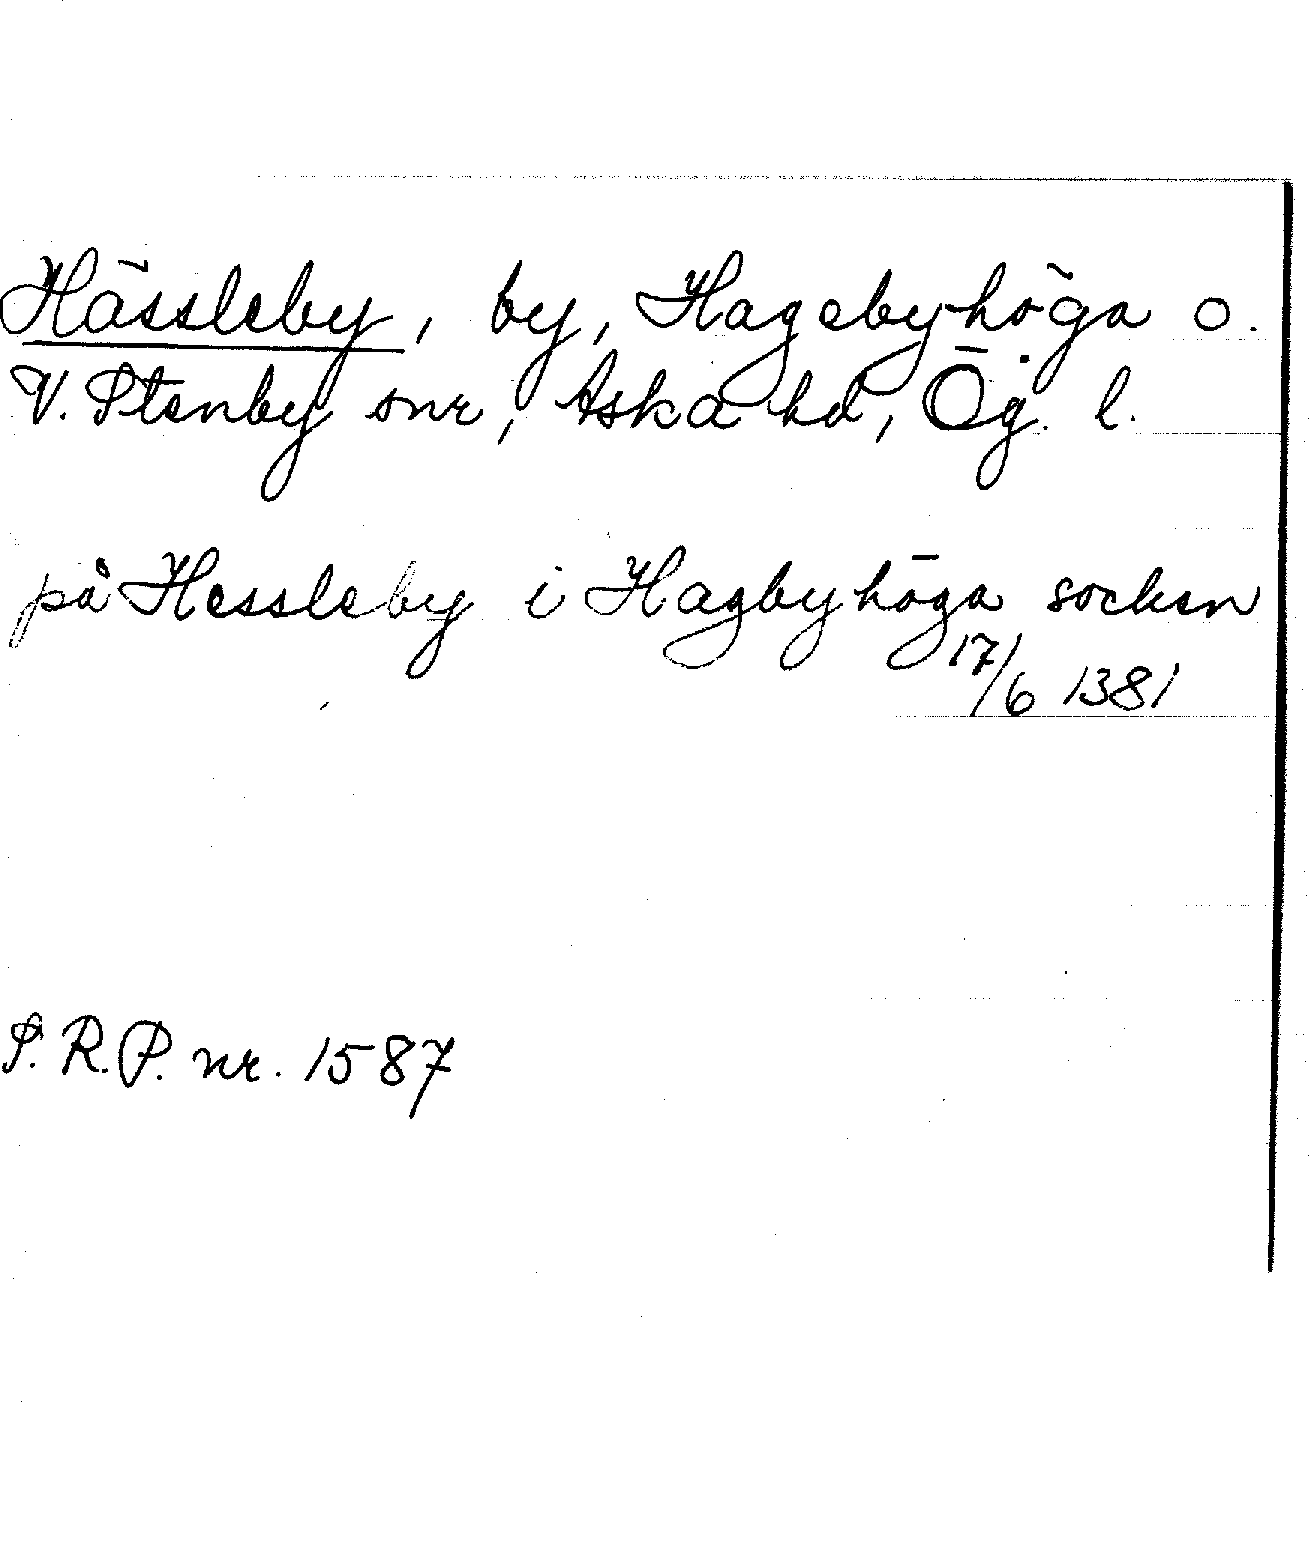 Hässleby, by, Hagebyhöga o.
V. Stenby snr, Aska hd, Ög. l.
på Hessleby i Hagbyhöga socken
17/6 1381
S. R. P. nr. 1587